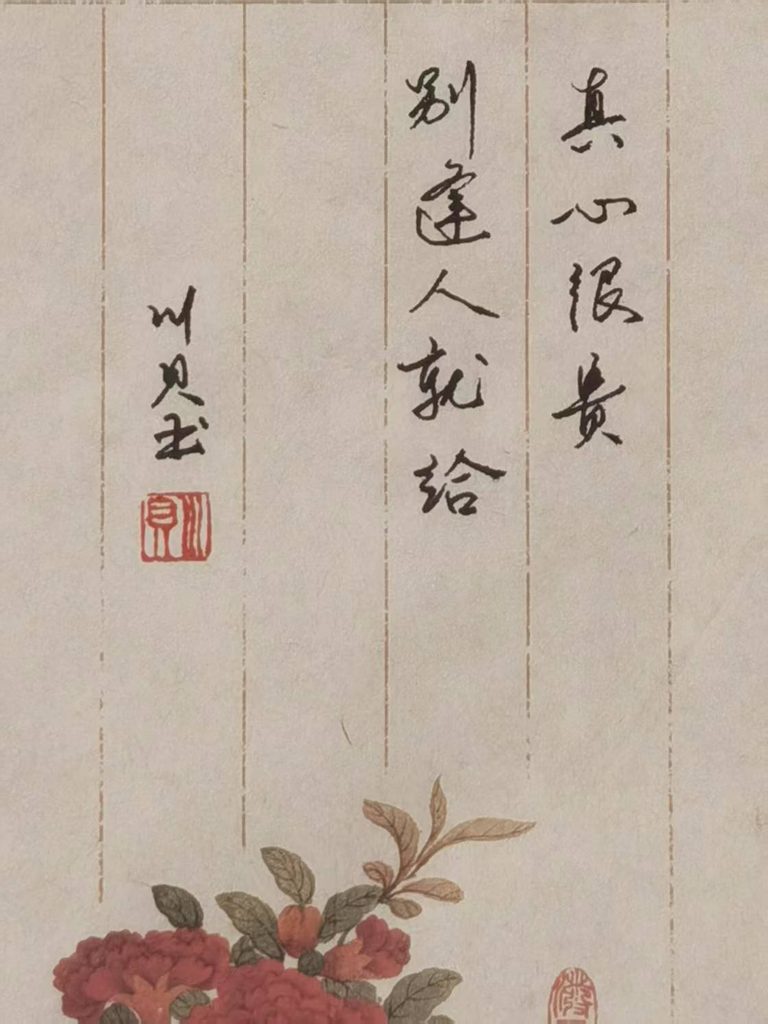 真心很贵
别逢人就给
川贝书
川贝